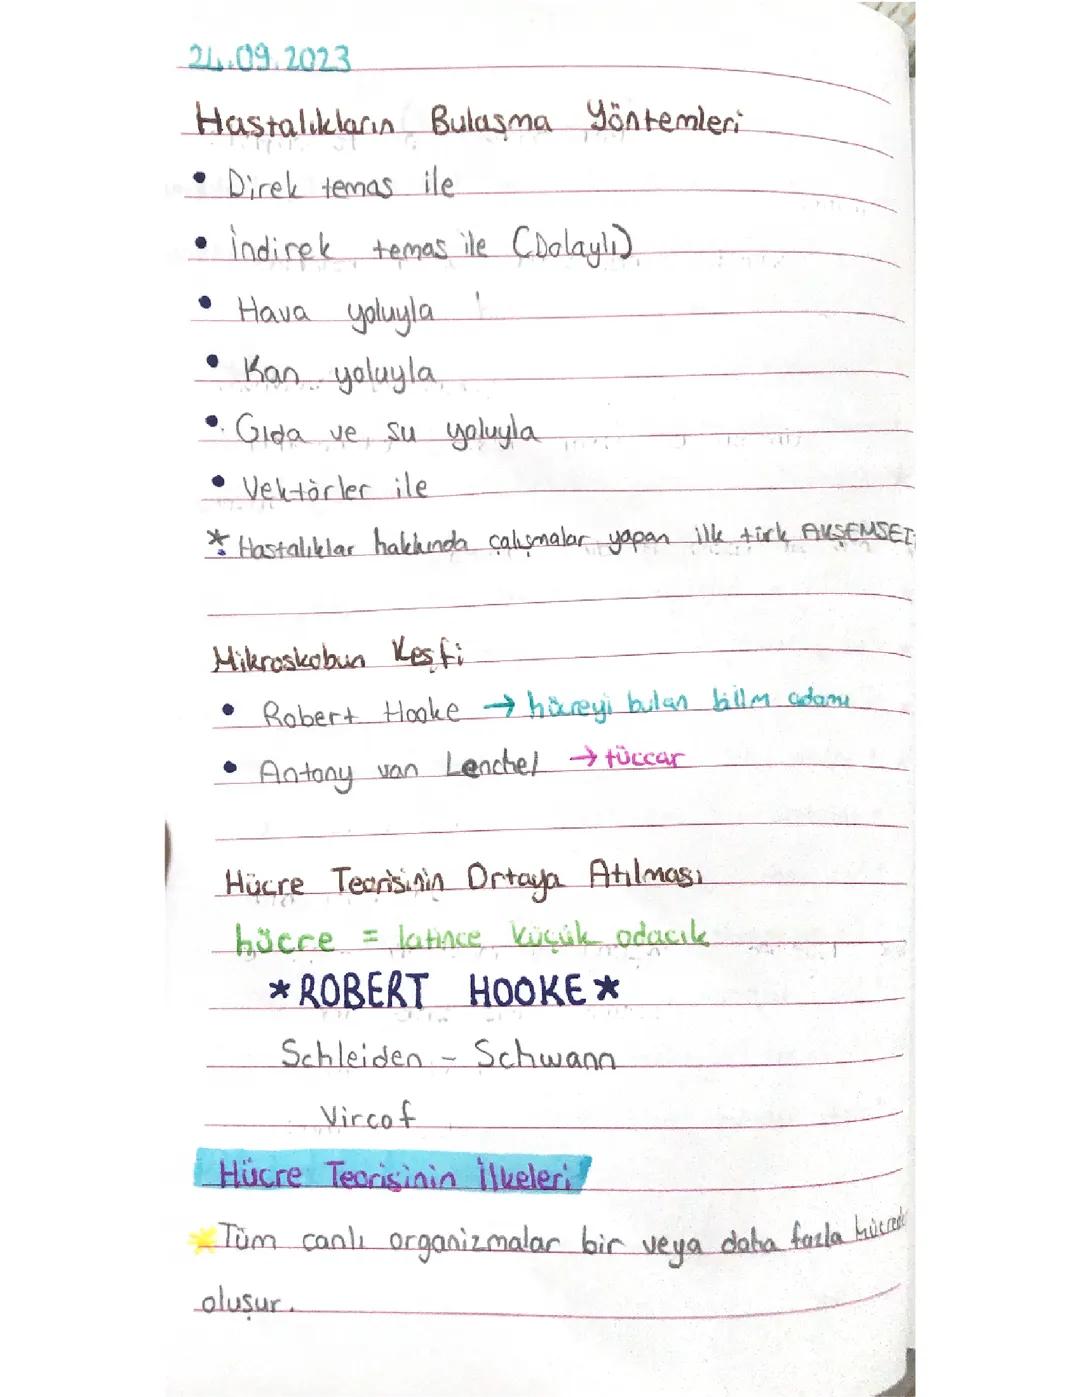 24.09.2023
Hastalıkların Bulaşma Yöntemleri
• Direk temas ile
• İndirek temas ile (Dolaylı)
• Hava yoluyla
• Kan yoluyla
• Gıda ve su yoluyla
• Vektörler ile
* Hastalıklar hakkında çalışmalar yapan ilk türk AKŞEMSET
Mikroskobun Keşfi
• Robert Hooke → hücreyi bulan bilim adamı
• Antony van Lenchel → tüccar
Hücre Teorisinin Ortaya Atılması
hücre = latince küçük odacık
* ROBERT HOOKE *
Schleiden - Schwann
Vircof
Hücre Teorisinin İlkeleri
* Tüm canlı organizmalar bir veya daha fazla hücrede
oluşur.